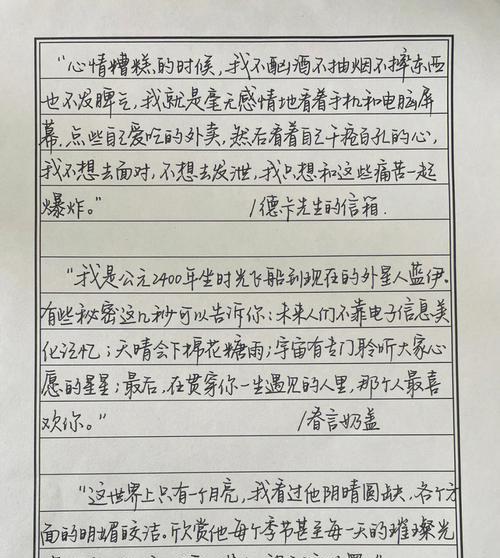 “心情糟糕的时候，我不酗酒不抽烟不摔东西
也不发脾气，我就是毫无感情地看着手机和电脑屏
幕，点些自己爱吃的外卖，然后看着自己千疮百孔的心，
我不想去面对，不想去发泄，我只想和这些痛苦一起
爆炸。” /德卡先生的信箱.
“我是公元2400年坐时光飞船到现在的外星人蓝伊，
有些秘密这几秒可以告诉你：未来人们不靠电子信息美
化记忆；天晴会下棉花糖雨；宇宙有专门聆听大家心
愿的星星；最后，在贯穿你一生遇见的人里，那个人最喜
欢你。” /眷言奶盖
“这世界上只有一个月亮，我看过他阴晴圆缺，各个方
面的明媚皎洁。欣赏他每个季节甚至每一天的璀璨光